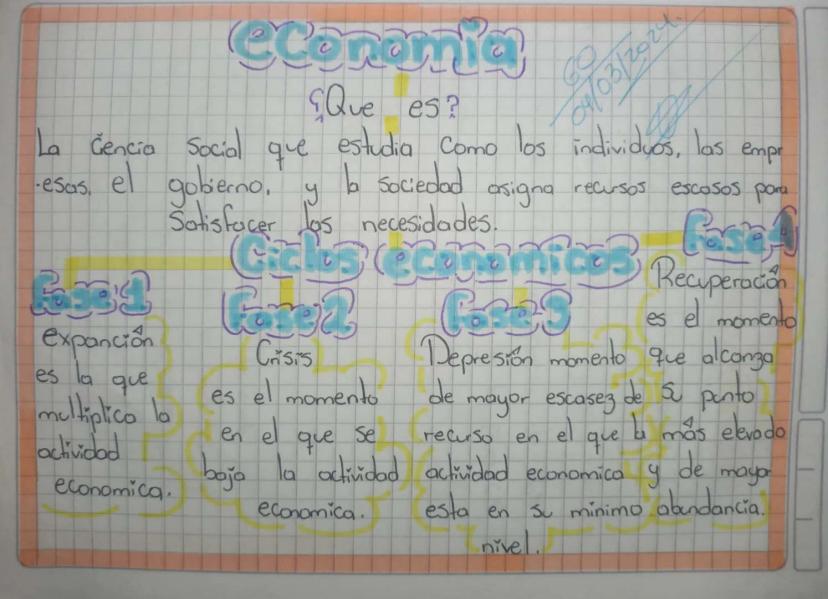 economia
¿Que es?
GO
04/03/2024.
La Cencia Social que estudia como los individuos, las empr
-esas, el gobierno, y la sociedad asigna recursos escasos para
Satisfacer las necesidades.
Ciclos economicos
fase 1
expanción
es la que
multiplico la
actividad
economica.
fase 2
Crisis
es el momento
en el que se
baja la actividad
economica.
fase 3
Depresión momento
de mayor escasez de
recurso en el que la
actividad economica
esta en su minimo
nivel.
fase 4
Recuperación
es el momento
que alcanza
su punto
más elevado
y de mayor
abundancia.